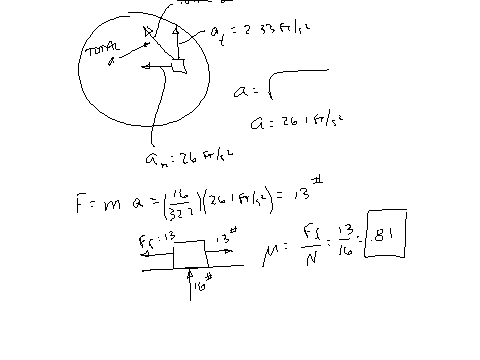 a_t = 2.33 ft/s²
TOTAL
a
a = √
a = 26.1 ft/s²
a_n = 26 ft/s²
F = m a = (16/32.2)(26.1 ft/s²) = 13#
Ff = 13
13#
16#
μ = Ff/N = 13/16 = .81